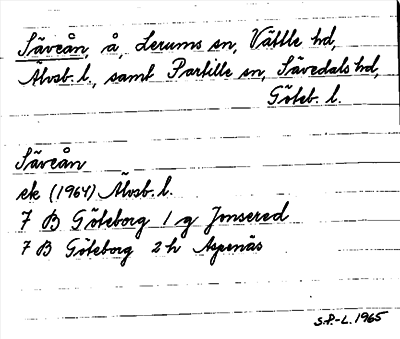 Säveån, å, Lerums sn, Vättle hd,
Älvsb. l., samt Partille sn, Sävedals hd,
Göteb. l.
Säveån
ek (1964) Älvsb. l.
7 B Göteborg 1 g Jonsered
7 B Göteborg 2 h Aspenäs
S.P.-L. 1965